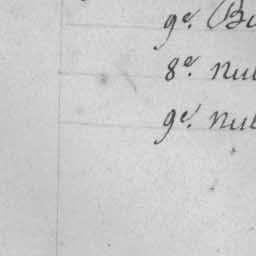 9e. (Bu
8e. nul
9e. nul